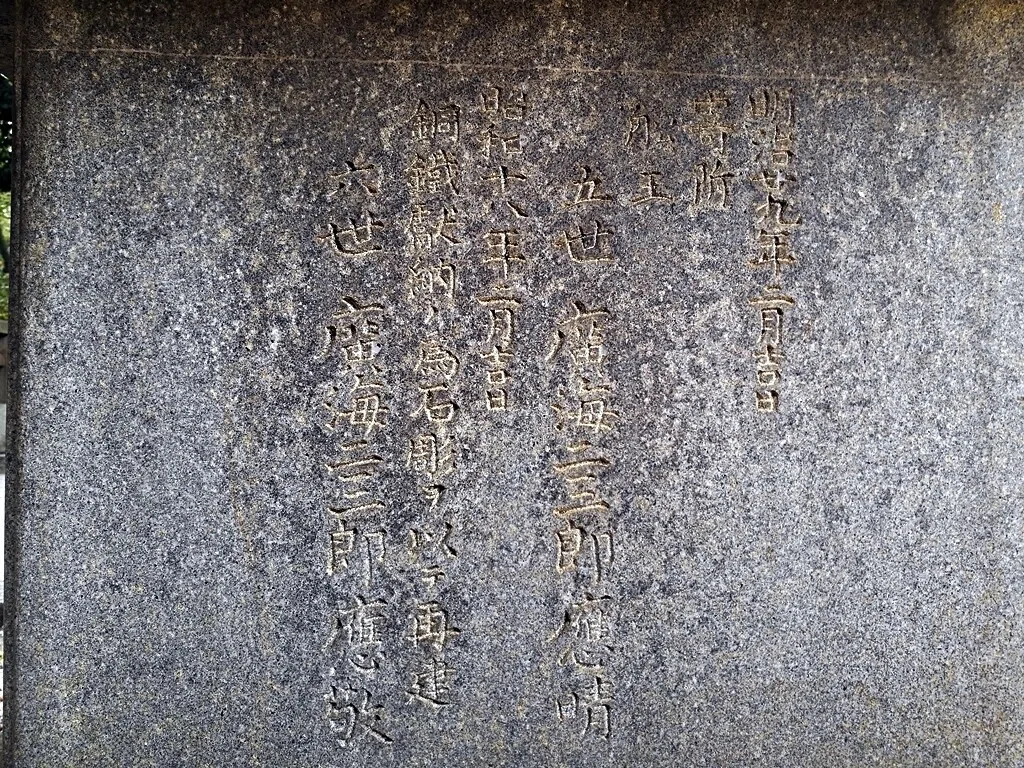 明治廿九年二月吉日
寄附
舩主
五世 廣海二三郎應晴
昭和十八年二月吉日
銅鐵献納ノ為石彫ヲ以テ再建
六世 廣海二三郎應敬